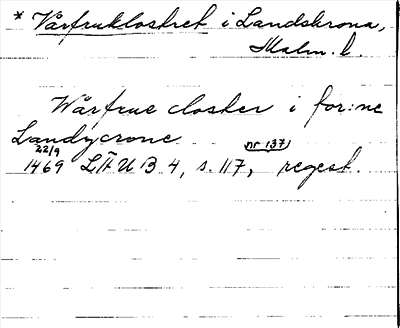 * Vårfruklostret i Landskrona,
Malm. l.
Wårfrue closter i for:ne
Landzcrone
22/9 nr 137
1469 LÄUB 4, s. 117, regest.